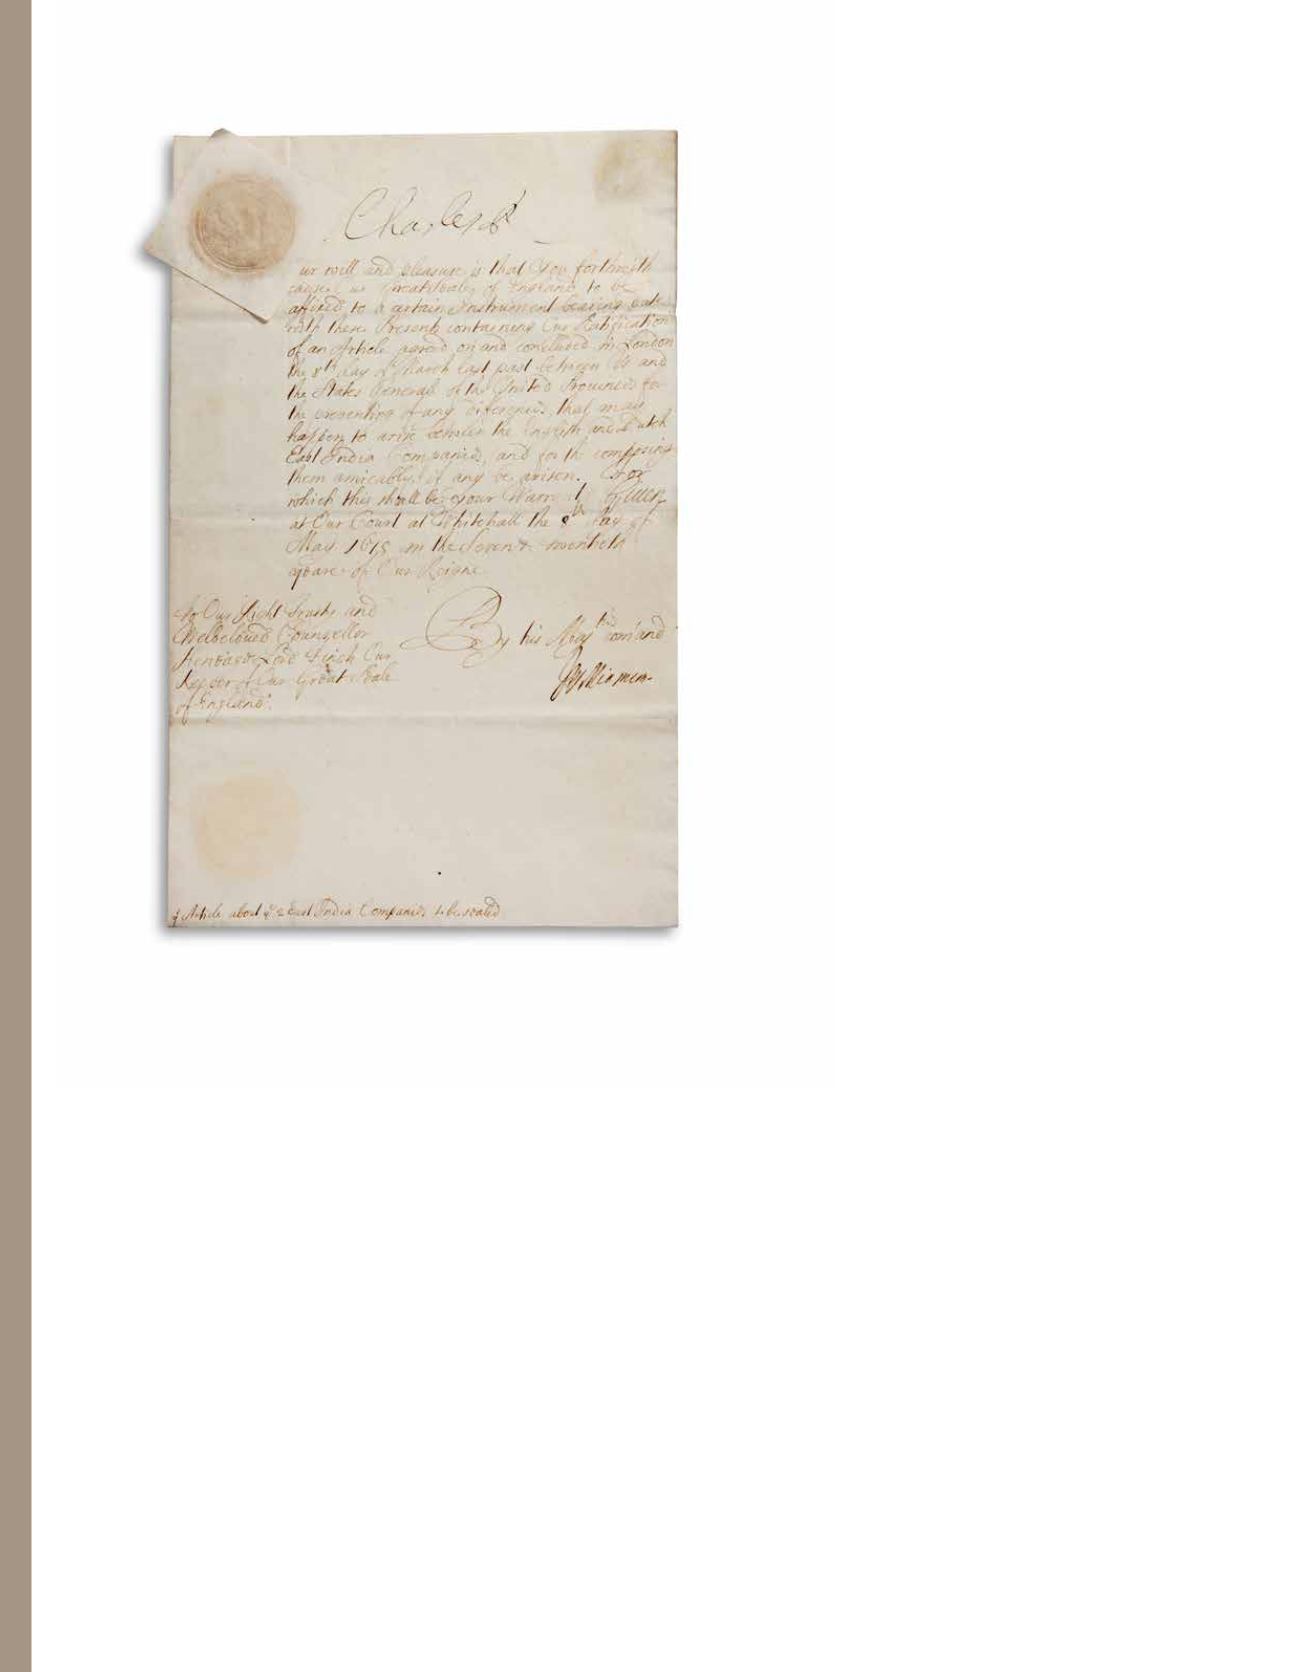 Charles R
ur will and pleasure is that You forthwith
cause Our Great Seale of England to be
affixed to a certain Instrument bearing date
with these Presents containeing Our Ratification
of an Article agreed on and concluded in London
the 8th day of March last past between Us and
the States Generall of the United Provinces for
the preventing of any differences, that may
happen to arise between the English and Dutch
East India Companies, and for the composing
them amicably, if any be arisen. For
which this shall be your Warrant. Given
at Our Court at Whitehall the 8th day of
May 1675 in the Seven & twentieth
yeare of Our Reigne
To Our Right Trusty and
Welbeloved Counsellor
Heneage Lord Finch Our
Keeper of Our Great Seale
of England.
By his Majties comand
ye Article about ye 2 East India Companies to be sealed